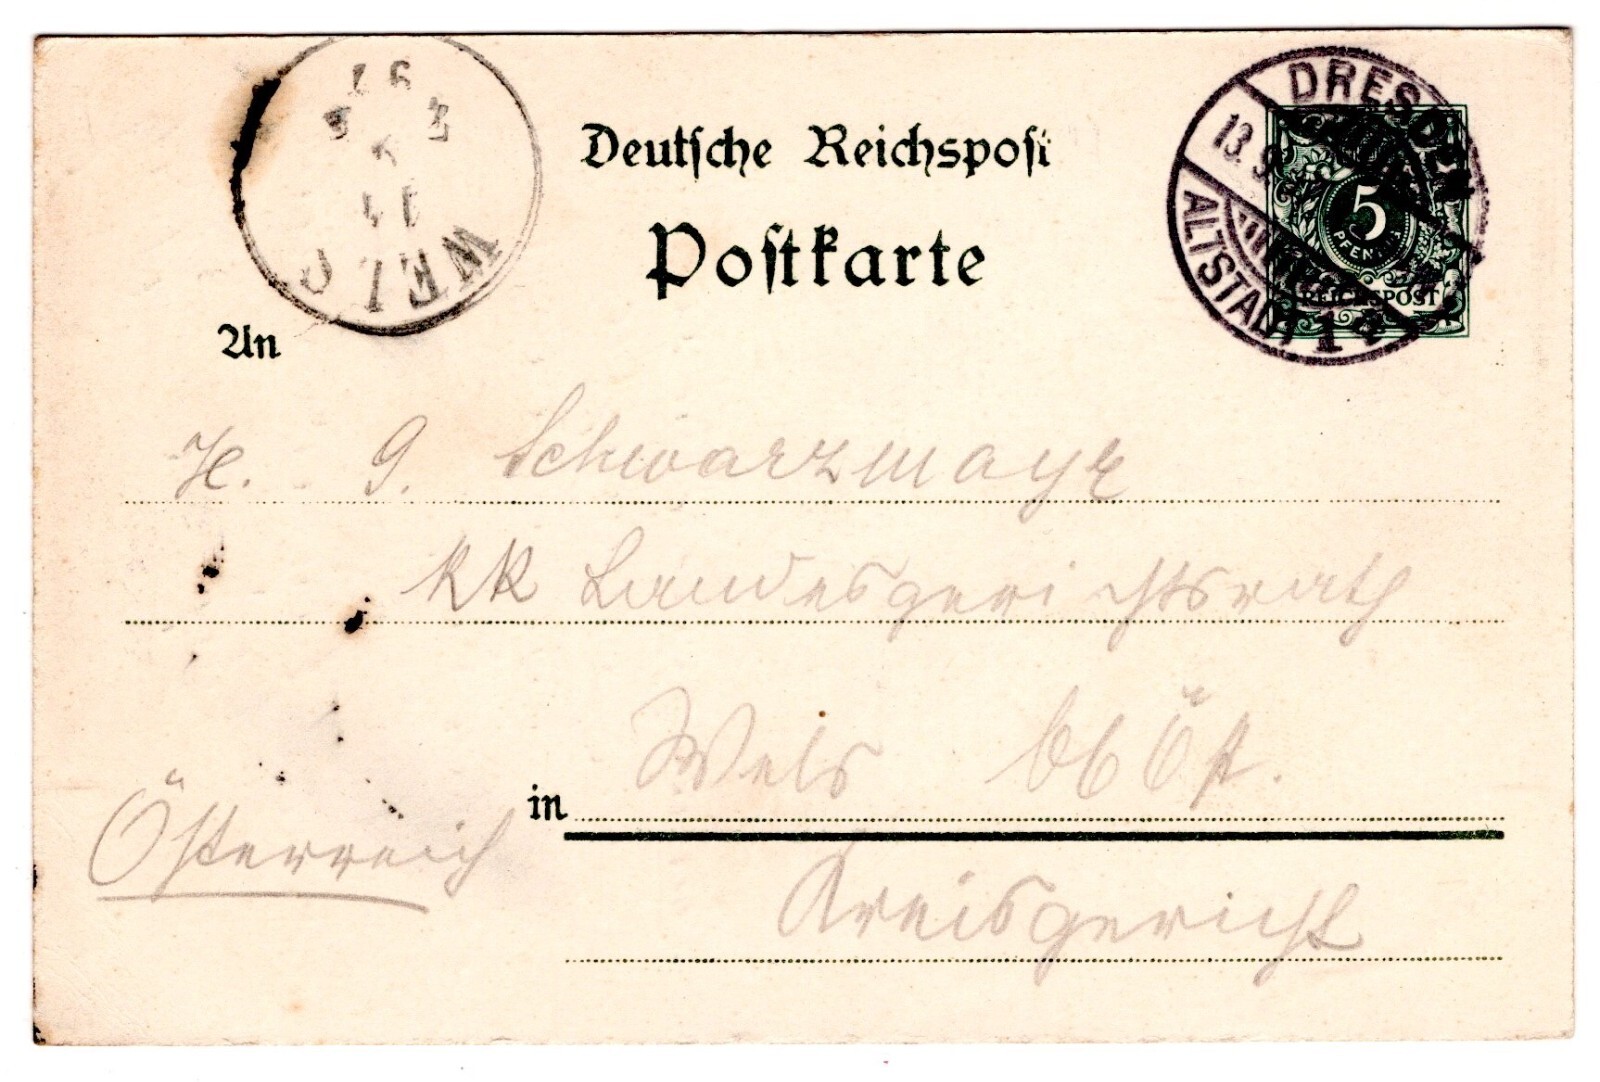 Deutsche Reichspost
Postkarte
DRESDEN
13. 9
ALTSTADT
1
5
PFENNIG
REICHSPOST
WELS
14
97
An
H. G. Schwarzmayr
KK Landesgerichtsrath
in Wels ob Öst.
Österreich
Kreisgericht